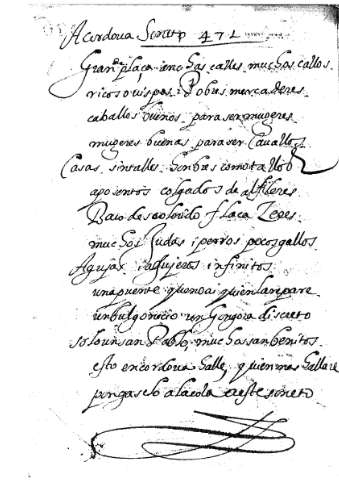 A cordova Soneto 471
Gran plaça anchas calles muchos callos
ricos ovispos Pobres mercaderes
caballos buenos para ser mugeres
mugeres buenas para ser Cavallos
Casas sin talles honbres como tallos
aposentos colgados de alfileres
Baco descolorido flaca Zeres
muchos Judas i perros pocos gallos
Agujas i alfileres infinitos
una puente que no ai quien la repare
un bulgo necio un Gongora discreto
solo un san Pablo, muchos sanbenitos
esto en cordova halle, quien mas hallare
pongaselo a la cola a este soneto